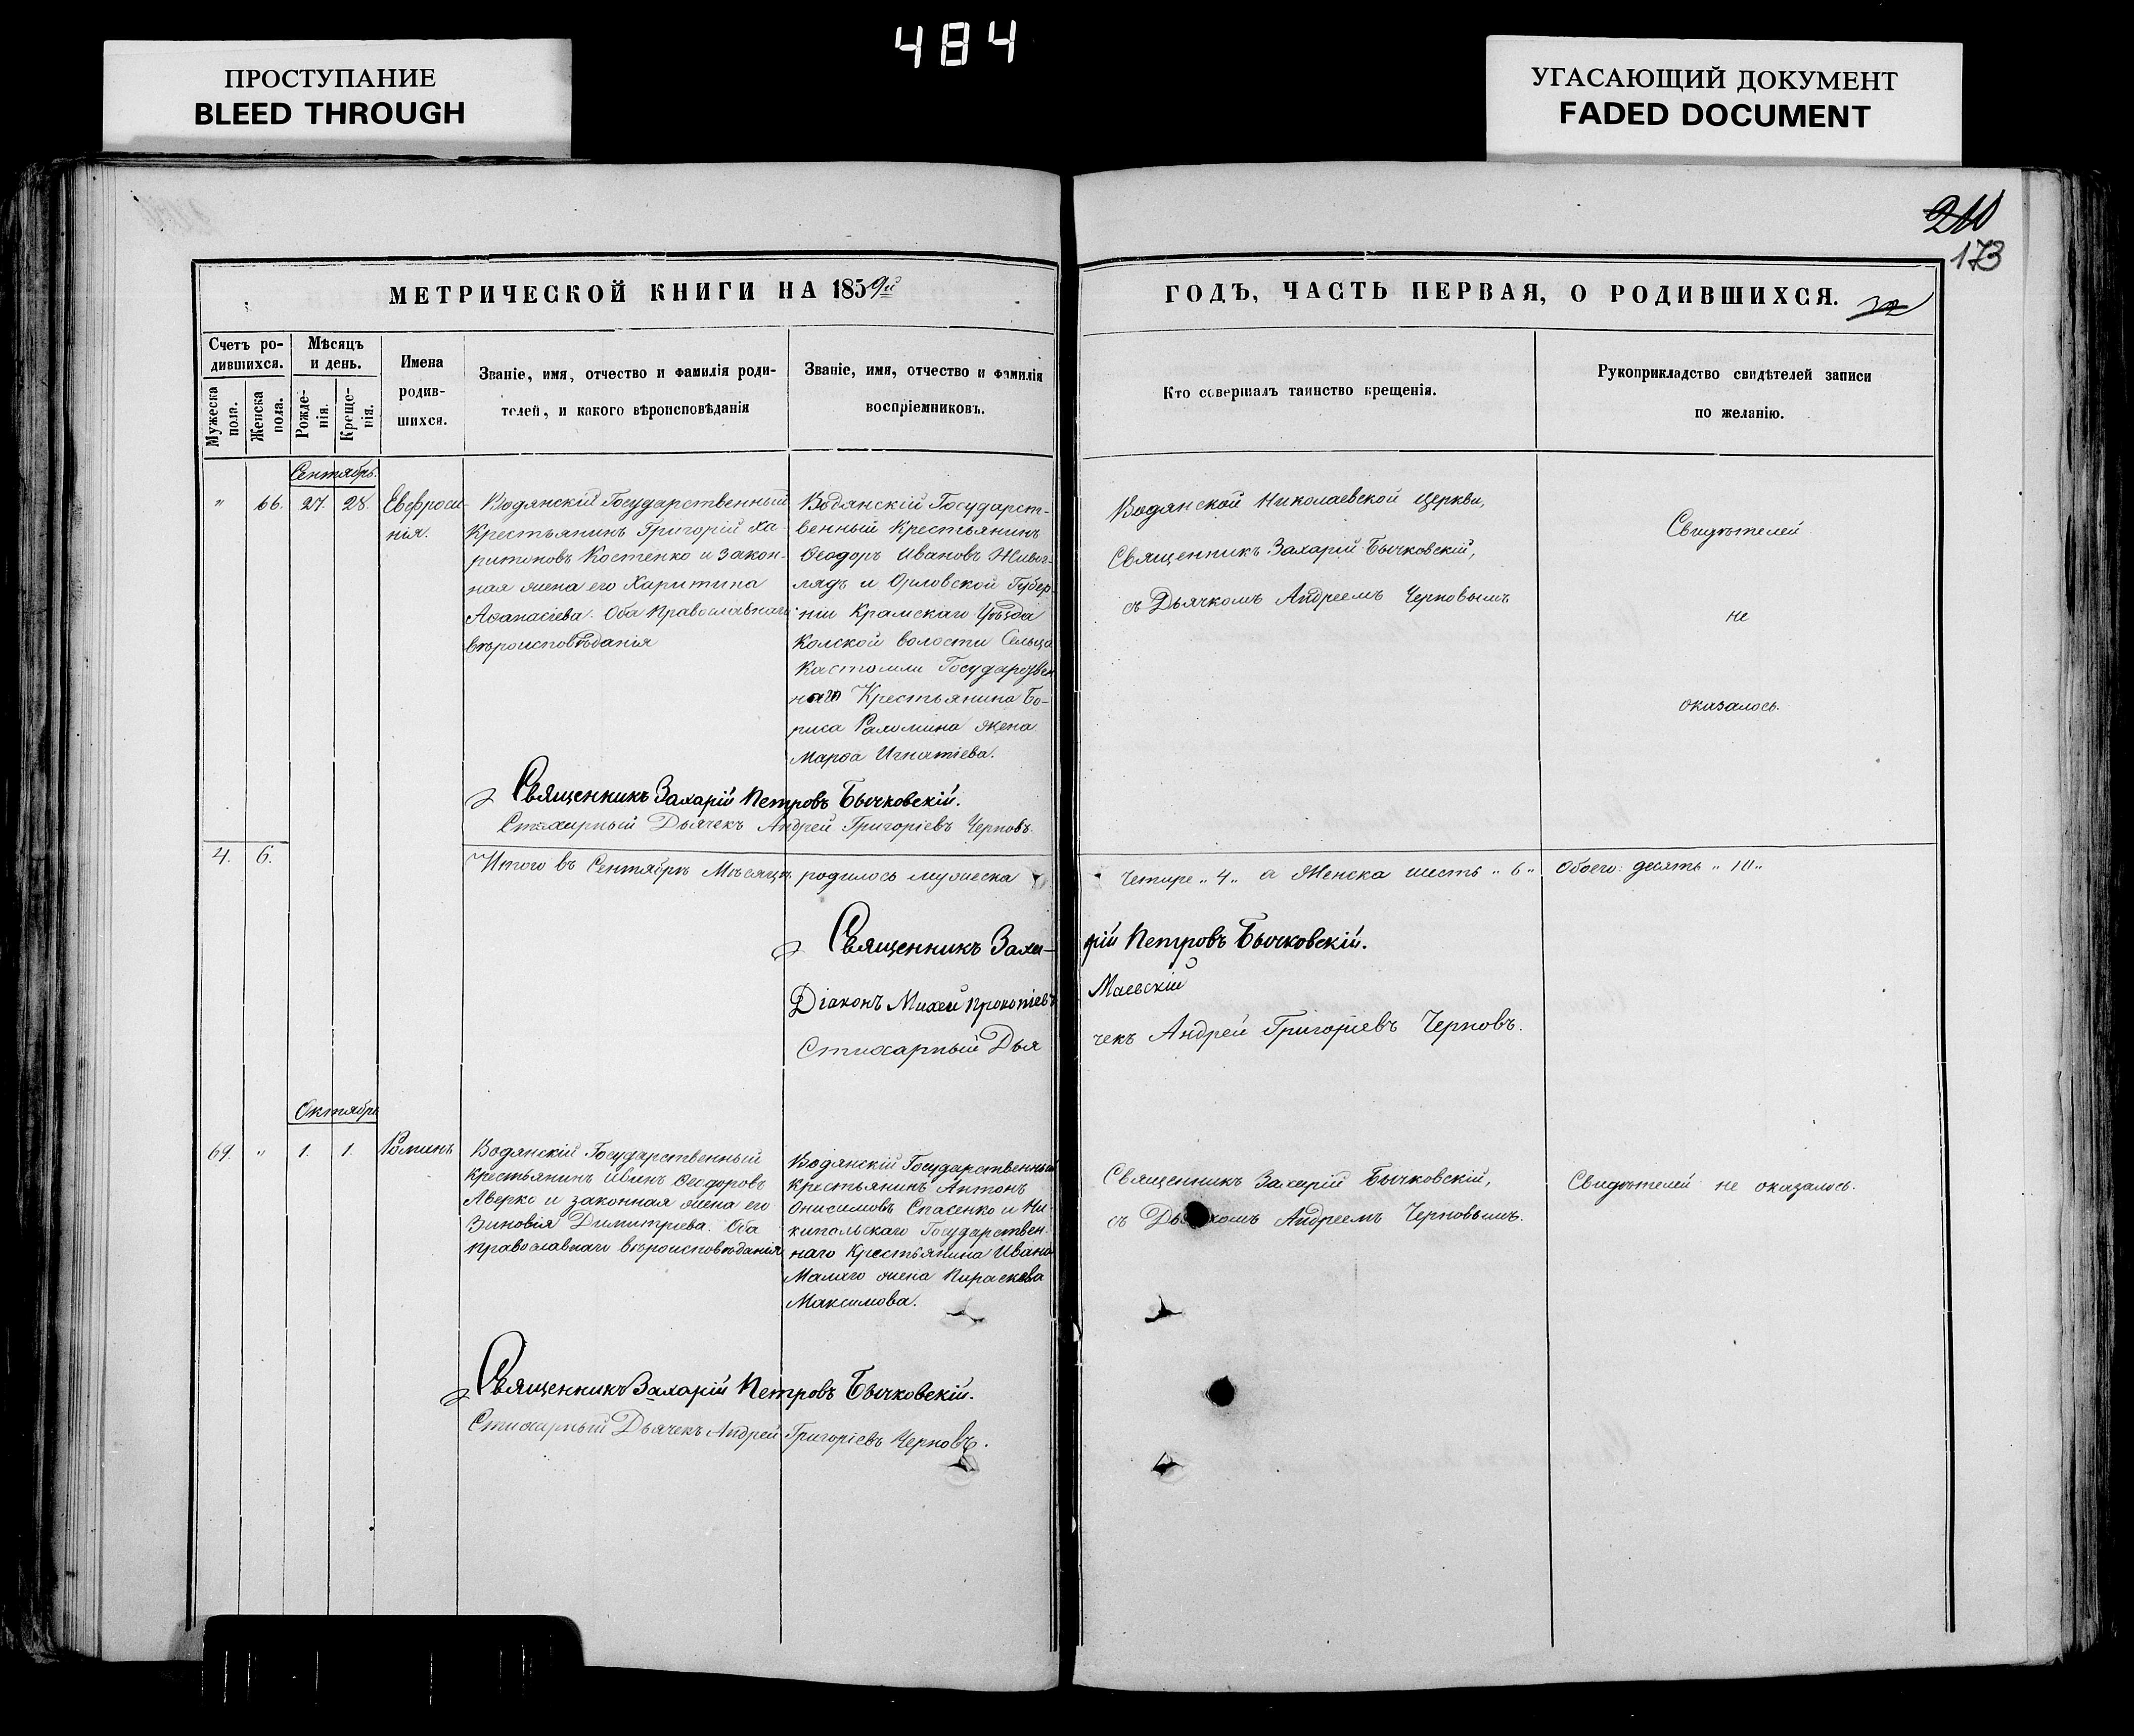 484
ПРОСТУПАНИЕ
BLEED THROUGH
УГАСАЮЩИЙ ДОКУМЕНТ
FADED DOCUMENT
210
173
МЕТРИЧЕСКОЙ КНИГИ НА 1859й
ГОДЪ, ЧАСТЬ ПЕРВАЯ, О РОДИВШИХСЯ.
Счетъ ро-
дившихся.
Мужеска пола.
Женска пола.
Мѣсяцъ
и день.
Рожде-
нія.
Креще-
нія.
Имена
родив-
шихся.
Званіе, имя, отчество и фамилія роди-
телей, и какого вѣроисповѣданія
Званіе, имя, отчество и фамилія
воспріемниковъ.
Кто совершалъ таинство крещенія.
Рукоприкладство свидѣтелей записи
по желанію.
Сентябрь.
" 66. 27. 28.
Евфроси-
нія.
Водянскій Государственный
Крестьянинъ Григорій Ха-
ритоновъ Костенко и закон-
ная жена его Харитина
Аѳанасіева. Оба Православнаго
вѣроисповѣданія
Водянскій Государст-
венный Крестьянинъ
Ѳеодоръ Ивановъ Живог-
лядъ и Орловской Губер-
ніи Крамскаго Уѣзда
Колской волости Сельца
Кастомли Государствен
наго Крестьянина Бо-
риса жена
Марѳа Игнатіева.
Водянской Николаевской церкви,
Священникъ Захарій Бычковскій,
съ Дьячкомъ Андреемъ Черновымъ
Свидѣтелей
не
оказалось.
Священникъ Захарій Петровъ Бычковскій.
Стихарный Дьячекъ Андрей Григоріевъ Черновъ.
4. 6. Итого въ Сентябрѣ Мѣсяцѣ родилось мужеска
четыре „4„ а Женска шесть „6„ Обоего десять „10„
Священникъ Заха-
рій Петровъ Бычковскій.
Діаконъ Михей Прокопіевъ
Маевскій
Стихарный Дья
чекъ Андрей Григоріевъ Черновъ.
Октябрь
69. " 1. 1.
Романъ
Водянскій Государственный
Крестьянинъ Иванъ Ѳеодоровъ
Аверко и законная жена его
Зиновія Димитріева. Оба
православнаго вѣроисповѣданія
Водянскій Государственный
Крестьянинъ Антонъ
Онисимовъ Спасенко и Ни-
кипольскаго Государствен-
наго Крестьянина Ивана
Малаго жена Параскева
Максимова.
Священникъ Захарій Бычковскій,
съ Дьячкомъ Андреемъ Черновымъ.
Свидѣтелей не оказалось.
Священникъ Захарій Петровъ Бычковскій.
Стихарный Дьячекъ Андрей Григоріевъ Черновъ.